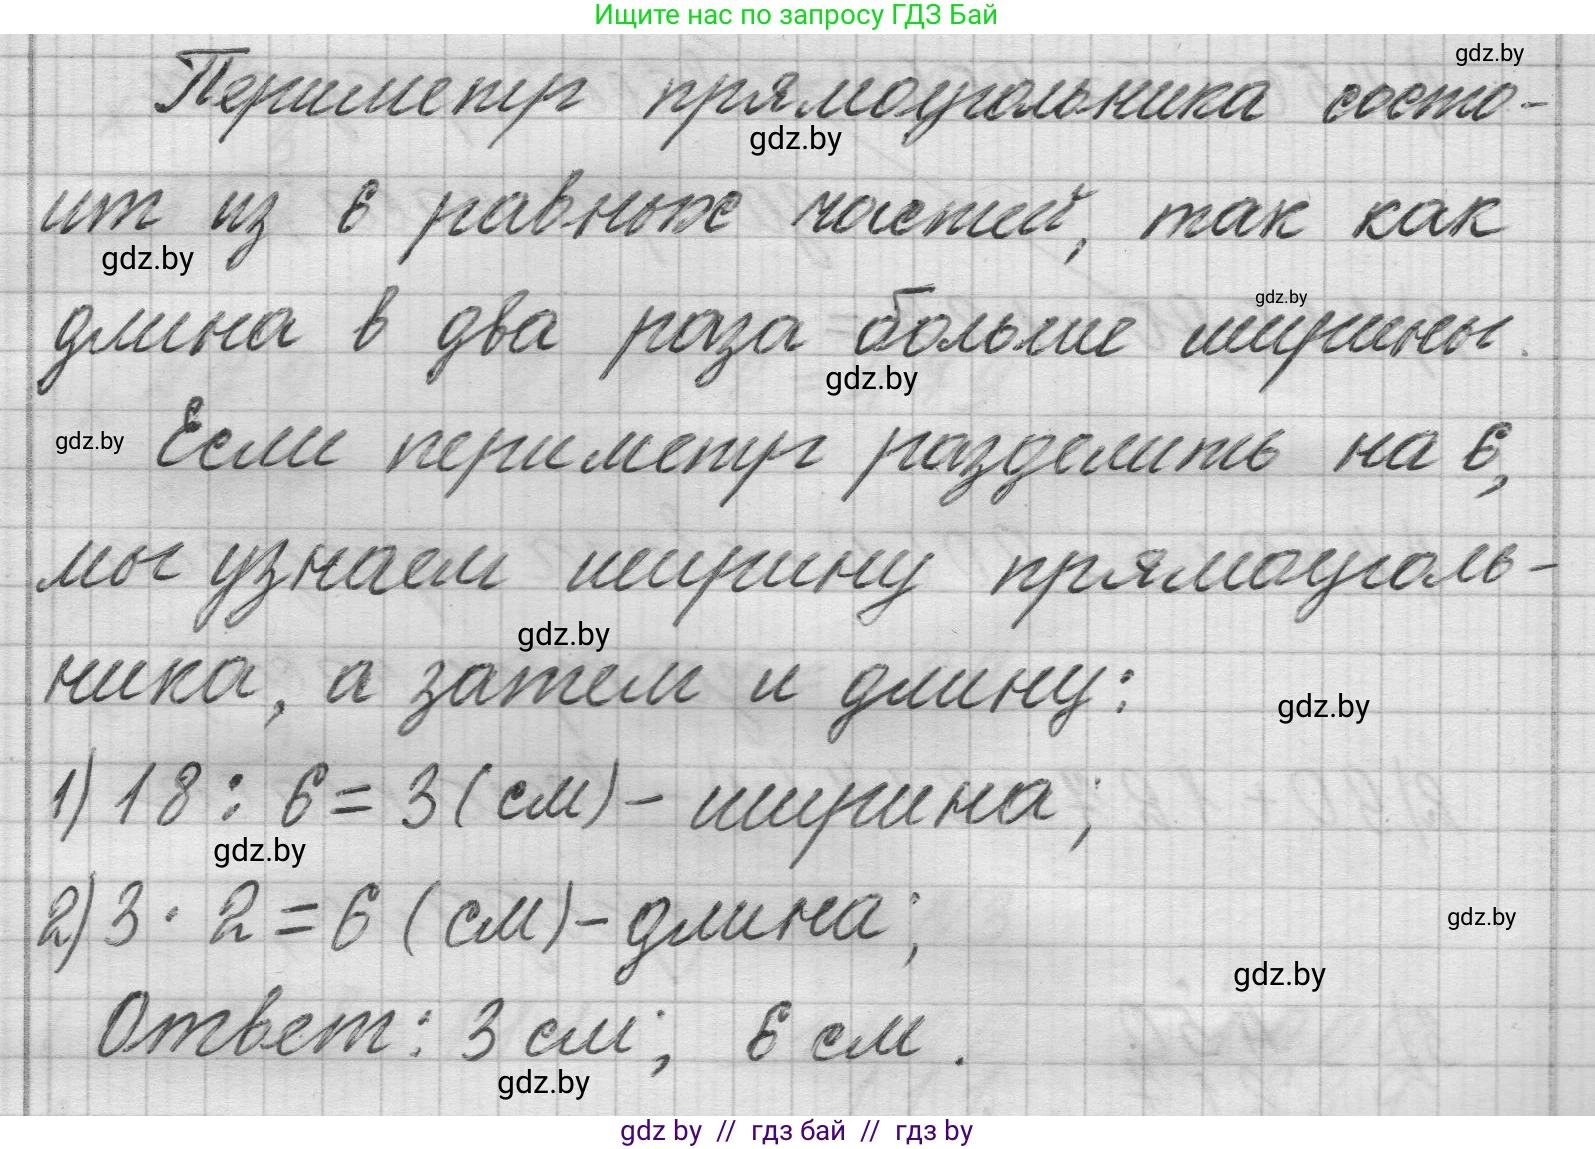 Ищите нас по запросу ГДЗ Бай
gdz.by
Периметр прямоугольника состо-
gdz.by
ит из 6 равных частей, так как
gdz.by
gdz.by
длина в два раза больше ширины.
gdz.by
Если периметр разделить на 6,
gdz.by
мы узнаем ширину прямоуголь-
gdz.by
ника, а затем и длину:
gdz.by
1) 18 : 6 = 3 (см) – ширина;
gdz.by
2) 3 · 2 = 6 (см) – длина;
gdz.by
gdz.by
Ответ: 3 см; 6 см.
gdz.by
gdz by // гдз бай // гдз by